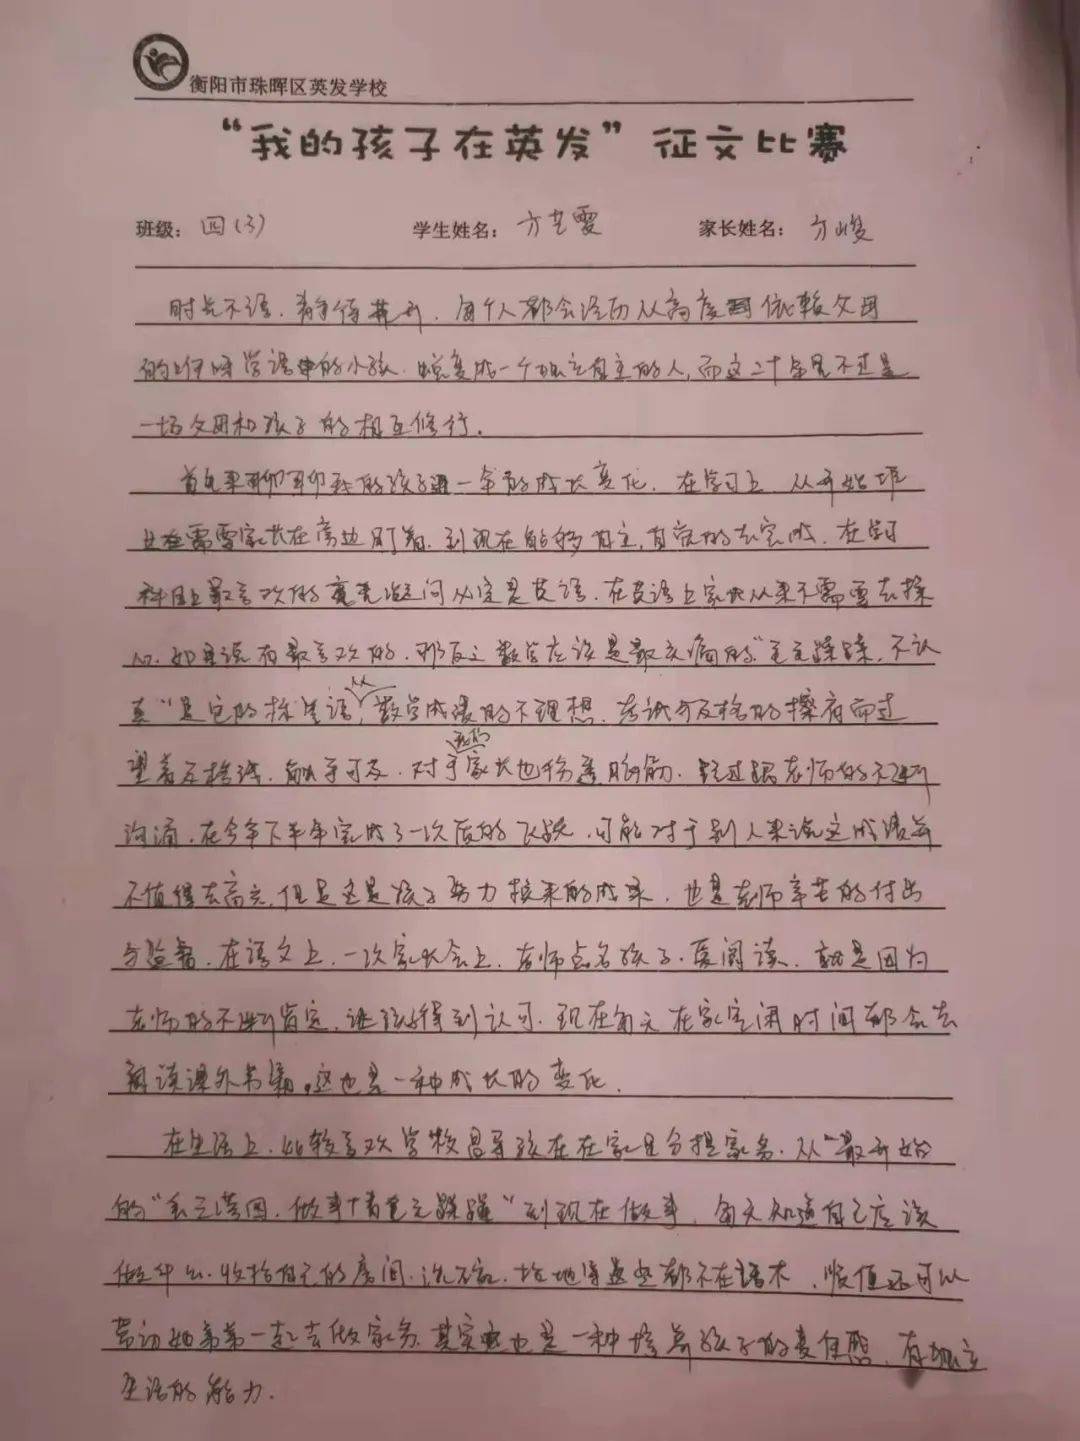 衡阳市珠晖区英发学校
“我的孩子在英发”征文比赛
班级：四(3) 学生姓名：方艺雯 家长姓名：方峻
时光不语，静待花开，每个人都会经历从高度依赖父母
的咿呀学语的小孩，蜕变成一个独立自主的人，而这二十年里不过是
一场父母和孩子的相互修行。
首先来聊聊我的孩子这一年的成长变化，在学习上，从开始
需要家长在旁边盯着，到现在能够自主，自觉的去完成，在学习
科目上最喜欢的毫无疑问必定是英语，在英语上家长从来不需要去操
心，如果说有最喜欢的，那反之数学应该是最头痛的“毛毛躁躁，不认
真”是它的标签语，从数学成绩的不理想，考试分及格的擦肩而过
望着不择, 触手可及，对于我们家长也伤透脑筋，经过跟老师的不断
沟通，在今年下半年完成了一次质的飞跃，可能对于别人来说这成绩并
不值得去高兴，但是这是孩子努力换来的成果，也是老师辛苦的付出
与监督，在语文上，一次家长会上，老师点名孩子，爱阅读，就是因为
老师的不断肯定，让孩子得到认可，现在每天在家空闲时间都会去
阅读课外书籍，这也是一种成长的变化，
在生活上，比较喜欢学校倡导孩在在家里分担家务，从“最开始
的“丢三落四，做事情毛毛躁躁”到现在做事，每天知道自己应该
做什么，收拾自己的房间，洗碗，拖地等这些都不在话下，顺值还可以
带动她弟弟一起去做家务，其实也是一种培养孩子的责任感，有独立
生活的能力．